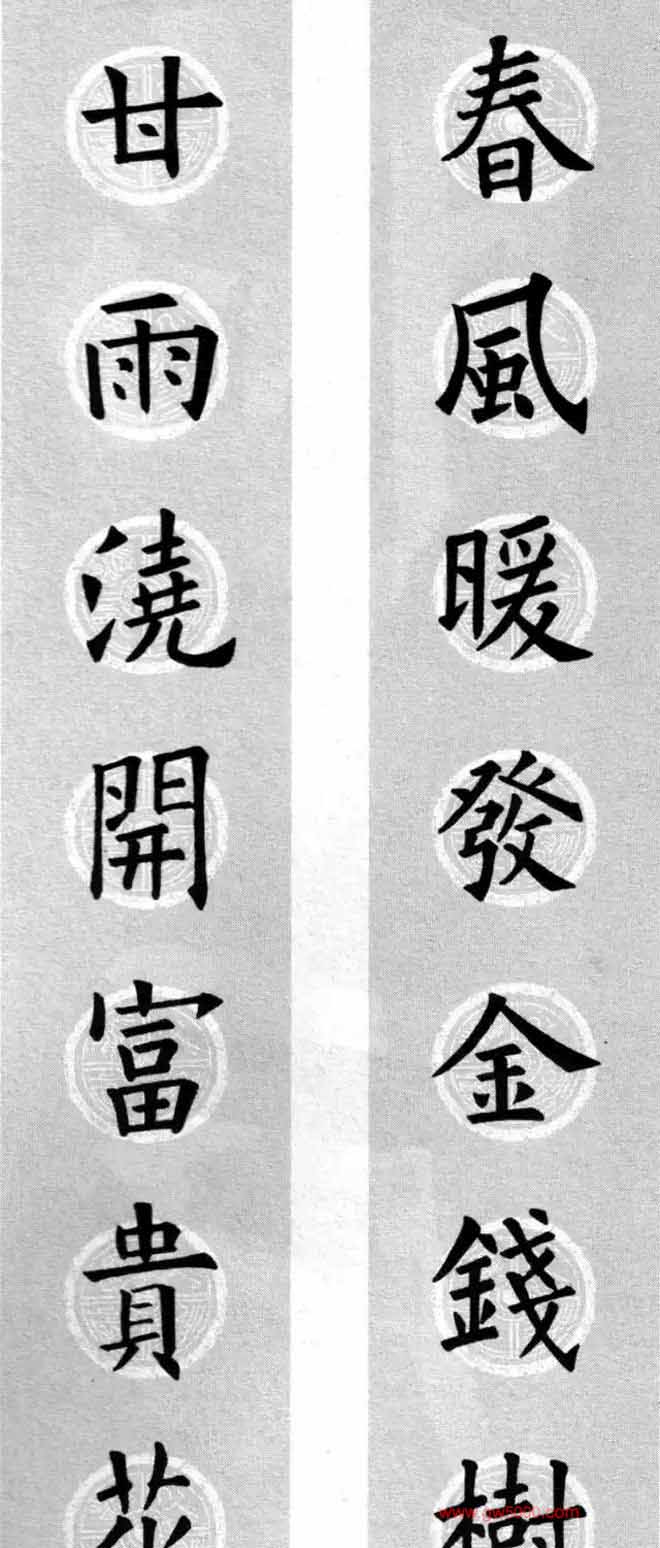 春風暖發金錢樹
甘雨澆開富貴花
www.gw5000.com